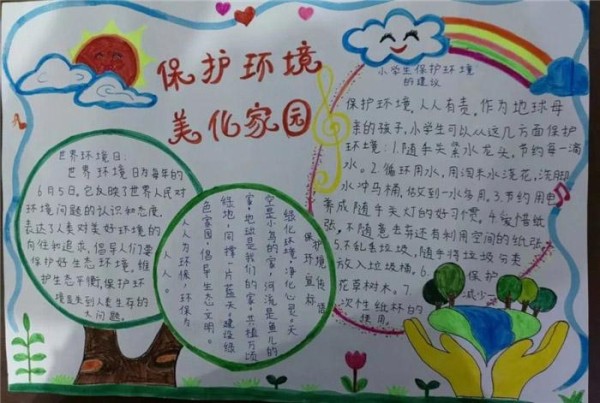 保护环境
美化家园
世界环境日:
世界环境日为每年的
6月5日,它反映了世界人民对
环境问题的认识和态度,
表达了人类对美好环境的
向往和追求,倡导人们要
保护好生态环境,维
护生态平衡,保护环
境是关到人类生存的
大问题。
保护环境宣标
绿化环境,净化心灵。天
空是小鸟的家,河流是鱼儿的
家,地球是我们的家;共植万顷
绿地,同撑一片蓝天;建设绿
色家园,倡导生态文明。
人人为环保,环保为
人人。
小学生保护环境
的建议
保护环境,人人有责,作为地球母
亲的孩子,小学生可以从这几方面保护
环境:1.随手关紧水龙头,节约每一滴
水。2.循环用水,用淘米水浇花,洗脚
水冲马桶,做到一水多用。3.节约用电
养成随手关灯的好习惯。4.爱惜纸
张,不随意丢弃还有利用空间的纸张
5.不乱丢垃圾,随手将垃圾分类
放入垃圾桶。6.保护
花草树木。7.减少
次性纸杯的
使用。